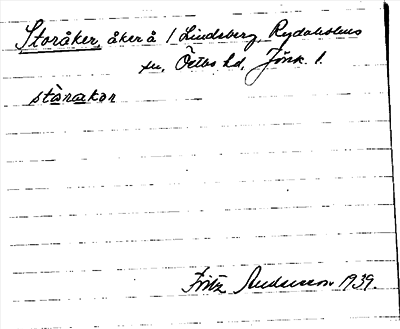 Storåker, åker å 1 Lindsberg, Rydaholms
sn, Östbo hd, Jönk. l.
stòrakər
Fritz Andersson 1939.